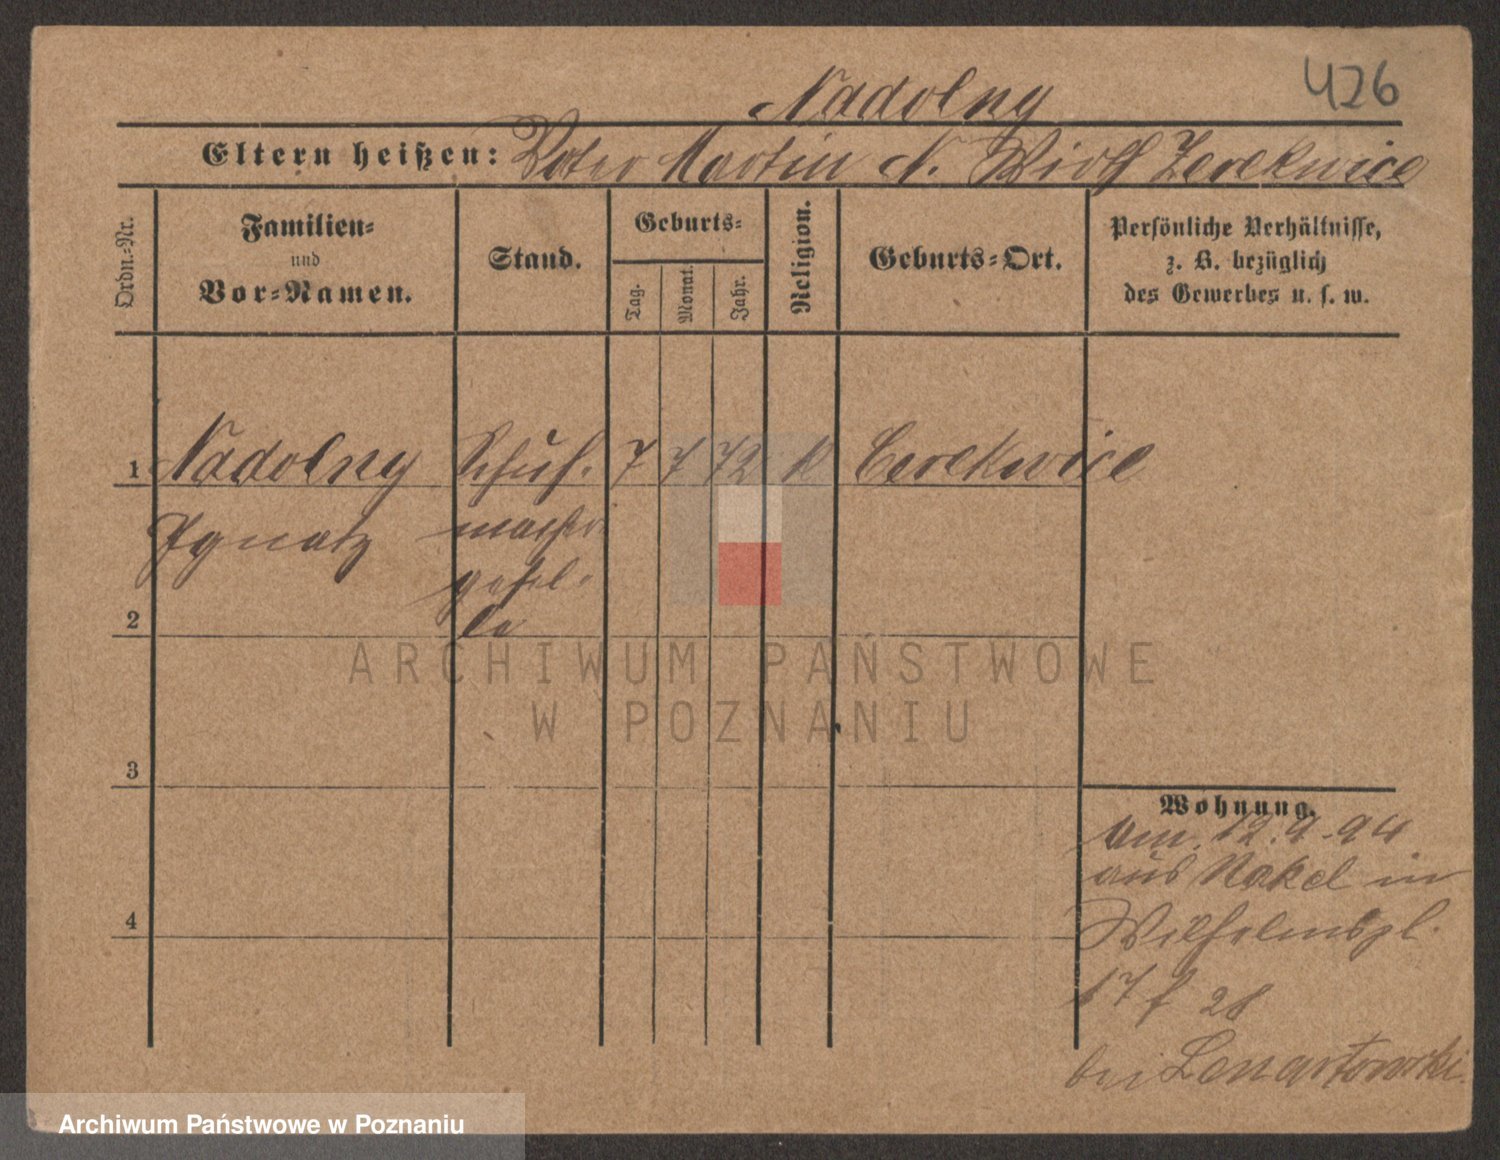 426
Nadolny
Eltern heißen: Vater Martin N. Wirth Zerekwice
Ordn.=Nr.
Familien=
und
Vor=Namen.
Stand.
Geburts=
Tag.
Monat.
Jahr.
Religion.
Geburts=Ort.
Persönliche Verhältnisse,
z. B. bezüglich
des Gewerbes u. s. w.
1 Nadolny Schuh. 7 7 72 k Cerekwice
Ignatz macher
gesel-
le
2
3
4
Wohnung.
Am. 12.9.94
aus Nakel in
Wilhelmspl.
17 f 28
bei Lenartowski.
ARCHIWUM PAŃSTWOWE
W POZNANIU
Archiwum Państwowe w Poznaniu